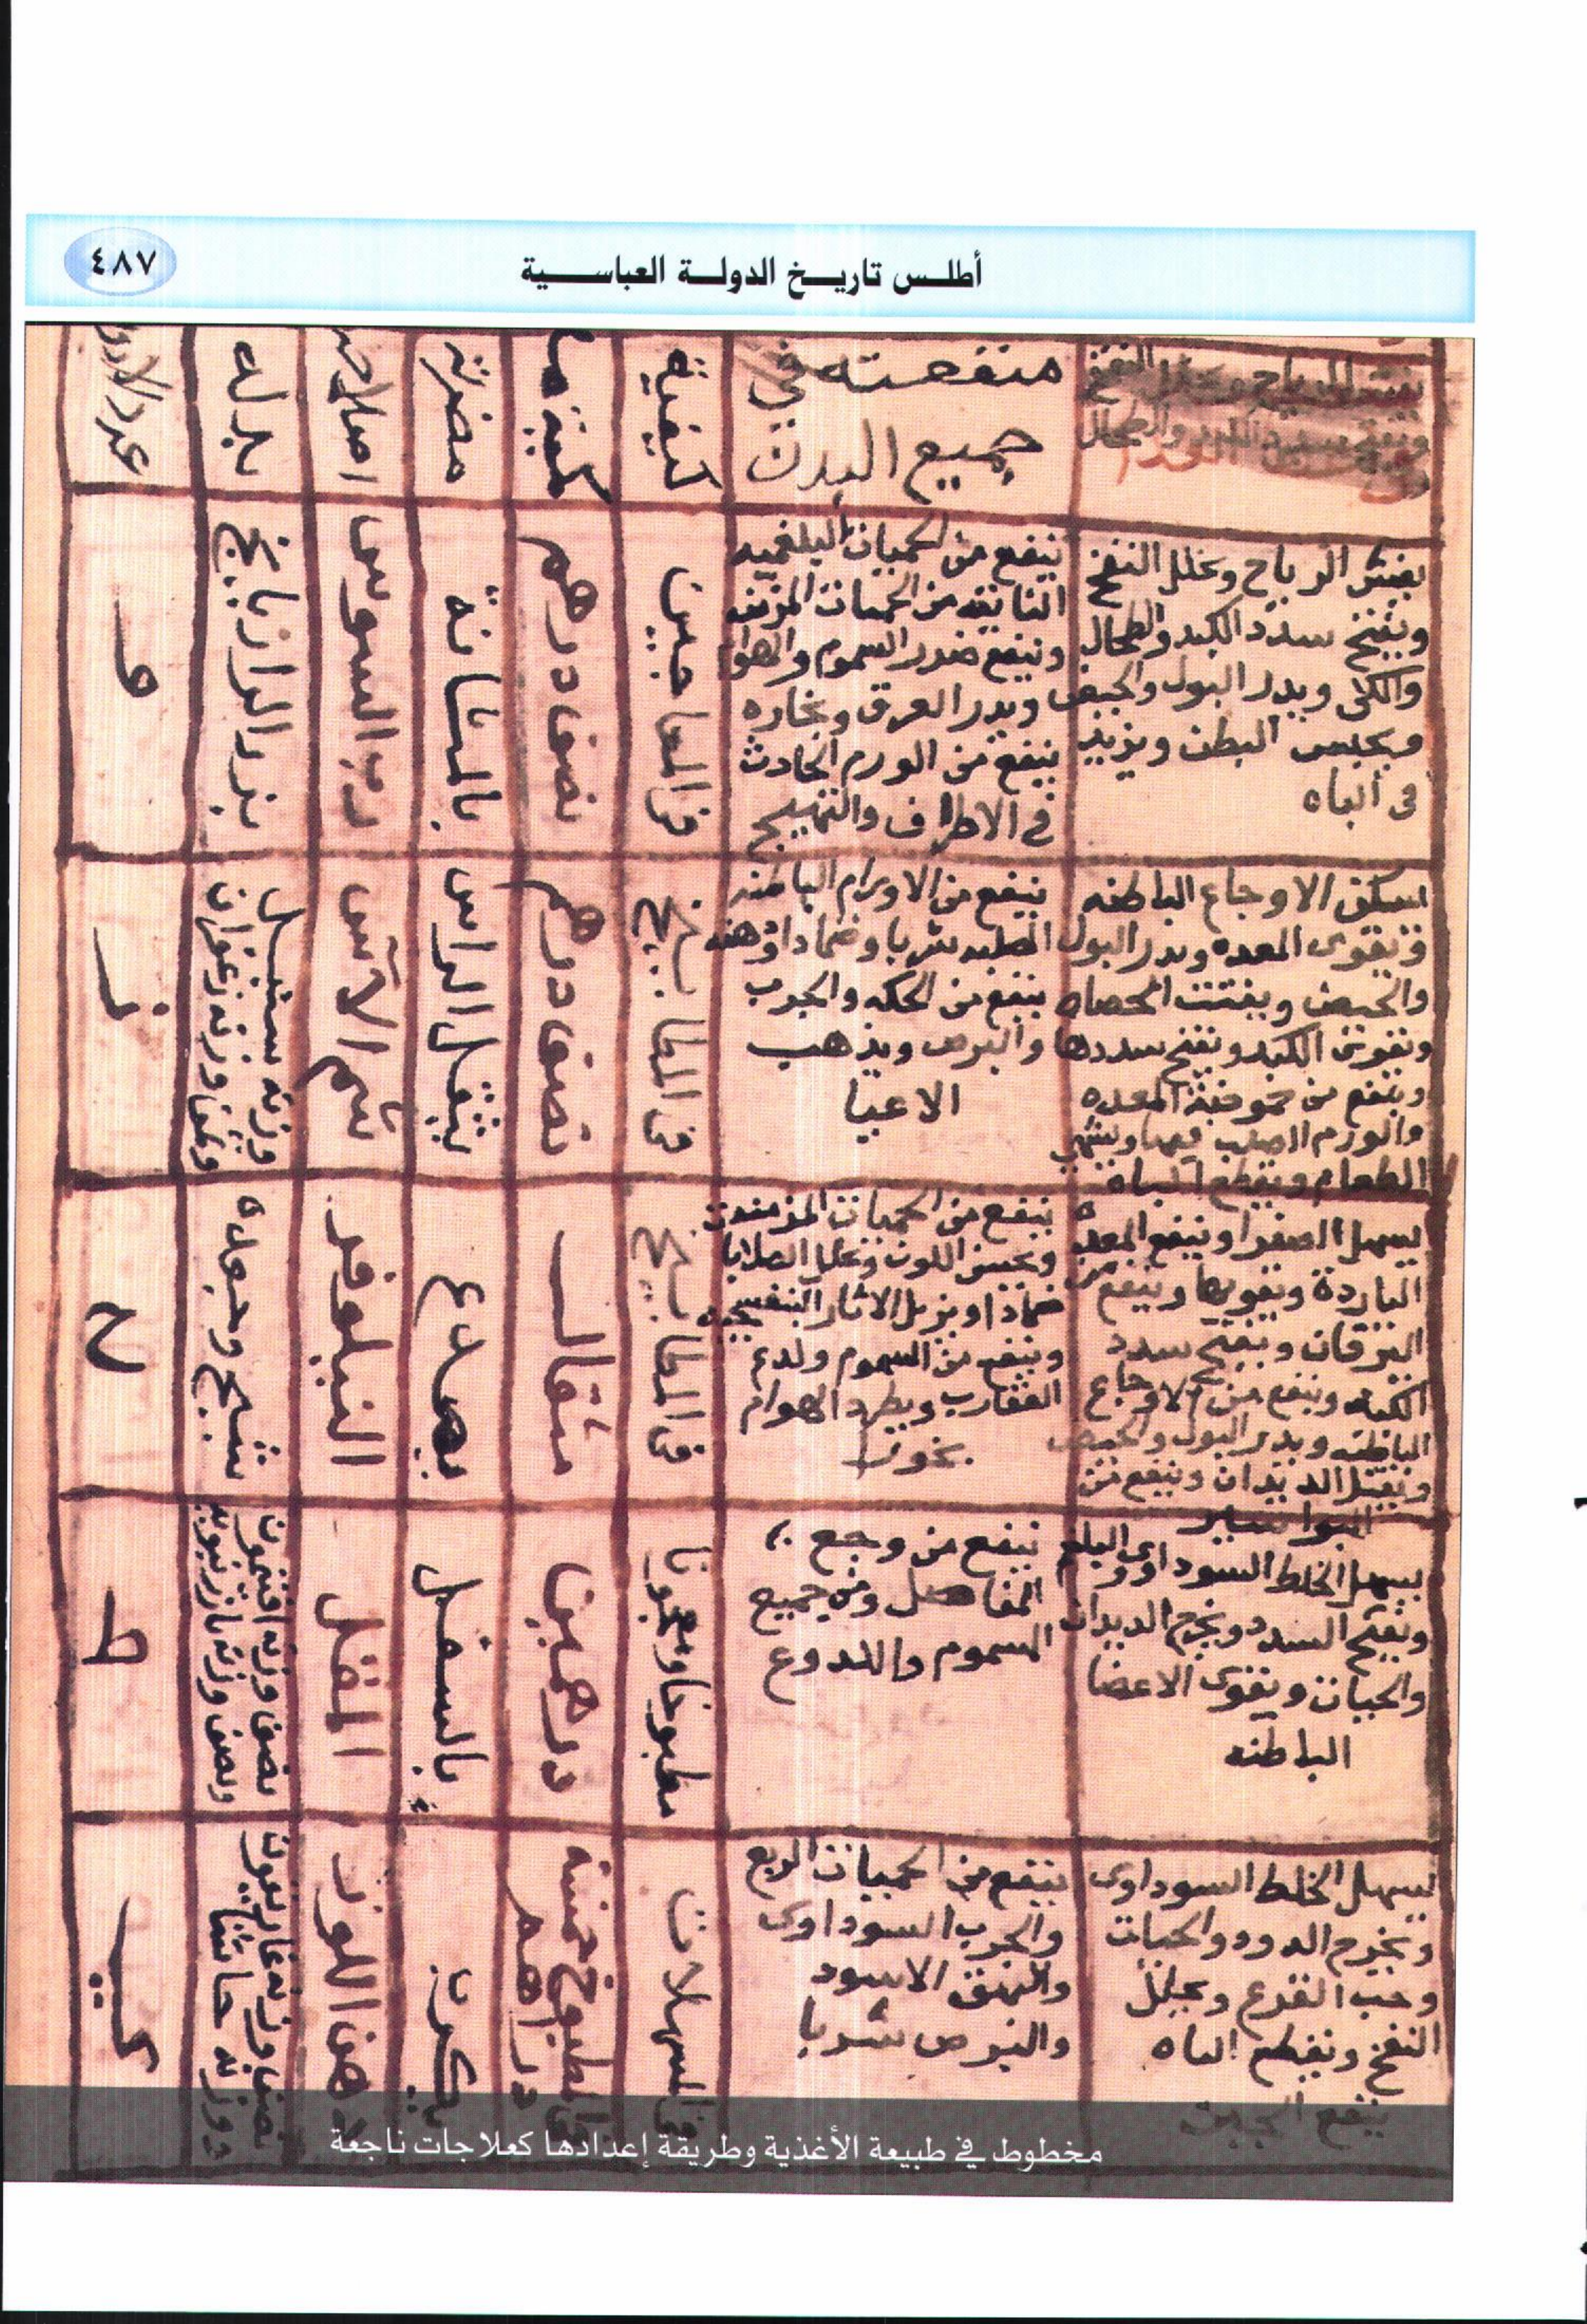 أطلس تاريخ الدولة العباسية
٤٨٧
منفعته في
جميع البدن
كيفيته
مضرته
بدله
يفش الرياح ويحلل النفخ
ويفتح سدد الكبد والطحال
والكلى ويدر البول والحيض
ويحبس البطن ويزيد
فى الباه
ينفع من الحميات البلغميه
ومن الحميات المزمنه
وينفع ضرر السموم والهوام
ويدر العرق وبخاره
ينفع من الورم الحادث
في الاطراف والتهيج
من المعاجين
نصف درهم
بالمثانة
رب السوس
بزر الرازيانج
و
يسكن الاوجاع الباطنه
ويقوى المعده ويدر البول
والحيض ويفتت الحصاه
ويقوى الكبد ويفتح سددها
وينفع من المعده
والورم الصلب فيها ويشهي
الطعام ويقطع الباه
ينفع من الاورام الباطنه
الصلبه شربا وضمادا ودهنه
ينفع من الحكه والجرب
والبرص ويذهب
الاعيا
من المطابيخ
نصف درهم
يثقل الراس
شم الآس
وزنه سنبل
ونصف وزنه زعفران
ز
يسهل الصفرا وينفع المعده
الباردة ويقويها وينفع من
اليرقان ويفتح سدد
الكبد وينفع من الاوجاع
الباطنه ويدر البول والحيض
ويقتل الديدان وينفع من
البواسير
ينفع من الحميات المزمنه
ويحسن اللون ويحلل الصلابا
ضمادا ويزيل الاثار البنفسجيه
وينفع من السموم ولدغ
العقارب ويطرد الهوام
بخورا
من المطابيخ
مثقال
يصدع
النيلوفر
شيح وجعده
ح
يسهل الخلط السوداوى والبلغم
ويفتح السدد ويخرج الديدان
والحيات ويقوى الاعضا
الباطنه
ينفع من وجع
المفاصل ومن جميع
السموم واللدوع
مطبوخا ومعجونا
درهمين
بالسفل
المقل
نصف وزنه افتيمون
ونصف وزنه
ط
يسهل الخلط السوداوى
ويخرج الدود والحيات
وحب القرع ويحلل
النفخ ويقطع الباه
ينفع من الحميات الربع
والجرب السوداوى
والبهق الاسود
والبرص شربا
من المسهلات
من المطبوخ خمسة
دراهم
يكرب
دهن اللوز
نصف وزنه غاريقون
ووزنه حاشا
ى
مخطوط في طبيعة الأغذية وطريقة إعدادها كعلاجات ناجعة